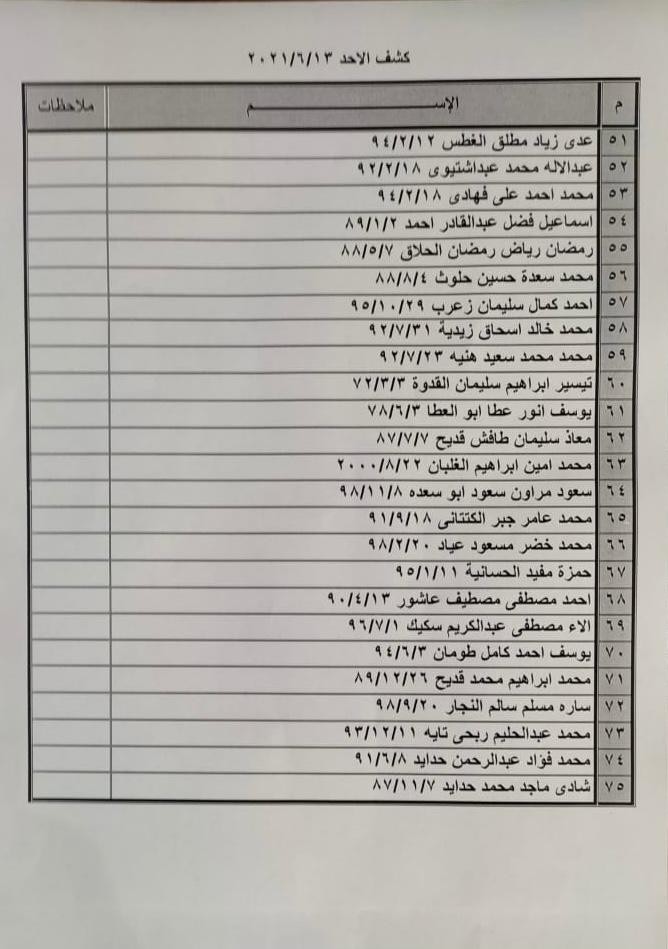 كشف الاحد ٢٠٢١/٦/١٣
م الإســــــم ملاحظات
٥١ عدى زياد مطلق الغطس ٩٤/٢/١٢
٥٢ عبدالاله محمد عبداشتيوى ٩٢/٢/١٨
٥٣ محمد احمد على فهادى ٩٤/٢/١٨
٥٤ اسماعيل فضل عبدالقادر احمد ٨٩/١/٢
٥٥ رمضان رياض رمضان الحلاق ٨٨/٥/٧
٥٦ محمد سعدة حسين حلوث ٨٨/٨/٤
٥٧ احمد كمال سليمان زعرب ٩٥/١٠/٢٩
٥٨ محمد خالد اسحاق زيدية ٩٢/٧/٣١
٥٩ محمد محمد سعيد هنيه ٩٢/٧/٢٣
٦٠ تيسير ابراهيم سليمان القدوة ٧٢/٣/٣
٦١ يوسف انور عطا ابو العطا ٧٨/٦/٣
٦٢ معاذ سليمان طافش قديح ٨٧/٧/٧
٦٣ محمد امين ابراهيم الغلبان ٢٠٠٠/٨/٢٢
٦٤ سعود مراون سعود ابو سعده ٩٨/١١/٨
٦٥ محمد عامر جبر الكتنانى ٩١/٩/١٨
٦٦ محمد خضر مسعود عياد ٩٨/٢/٢٠
٦٧ حمزة مفيد الحسانية ٩٥/١/١١
٦٨ احمد مصطفى مصطيف عاشور ٩٠/٤/١٣
٦٩ الاء مصطفى عبدالكريم سكيك ٩٦/٧/١
٧٠ يوسف احمد كامل طومان ٩٤/٦/٣
٧١ محمد ابراهيم محمد قديح ٨٩/١٢/٢٦
٧٢ ساره مسلم سالم النجار ٩٨/٩/٢٠
٧٣ محمد عبدالحليم ربحى تايه ٩٣/١٢/١١
٧٤ محمد فؤاد عبدالرحمن حدايد ٩١/٦/٨
٧٥ شادى ماجد محمد حدايد ٨٧/١١/٧